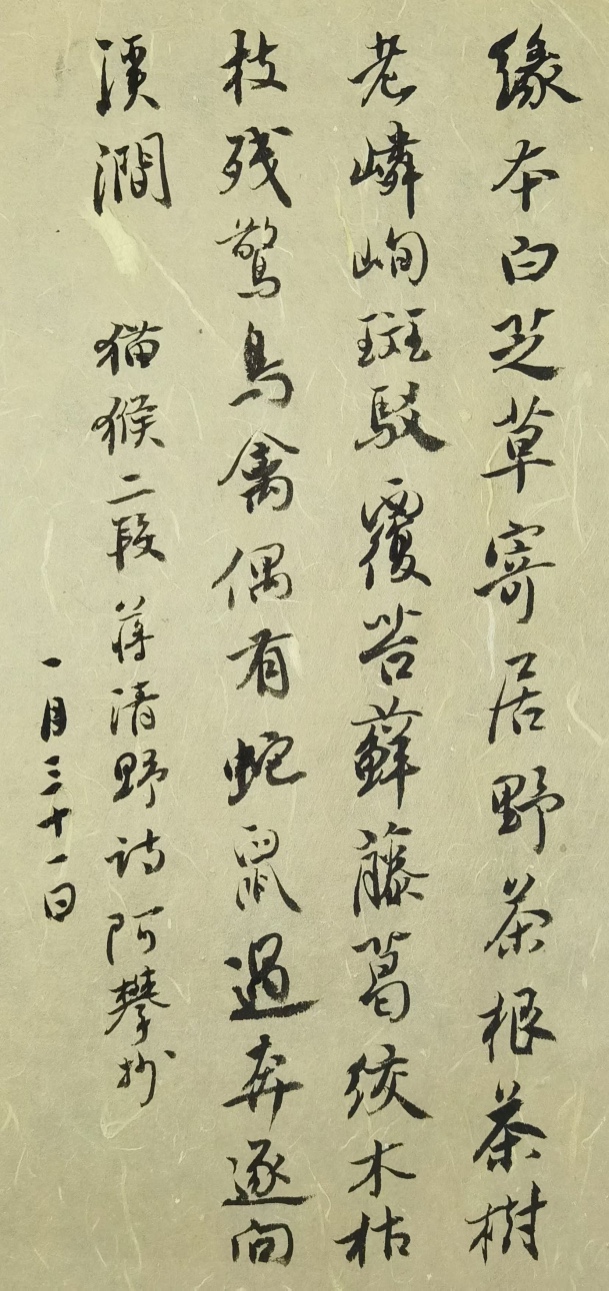 缘本白芝草寄居野茶根茶樹
老嶙峋斑駁覆苔蘚藤葛绞木枯
枝残驚鸟禽偶有蛇鼠過奔逐向
溪澗
猫猴二段蒋清野诗阿攀抄
一月三十一日